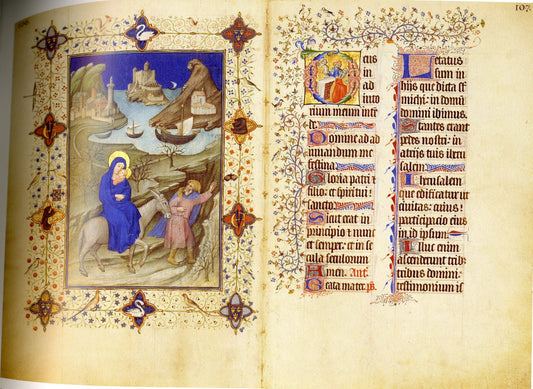 107.
Deus
in
ad
iuto
rium meum inten
de.
Domine ad ad
iuuandum me
festina.
Gloria patri ⁊
filio et spiritui
sancto.
Sicut erat in
principio ⁊ nunc
et semper. et in se
cula seculorum
Amen. Ant.
Beata mater. ps.
Letatus
sum in
hiis que dicta st
michi: in domū
domini ibimus.
Stantes erant
pedes nostri: in
atriis tuis iheru
salem.
Iherusalem
que edificatur ut
ciuitas: cuius
participacio eius
in id ipsum.
Illuc enim
ascenderunt trib;
tribus domini:
testimonium is